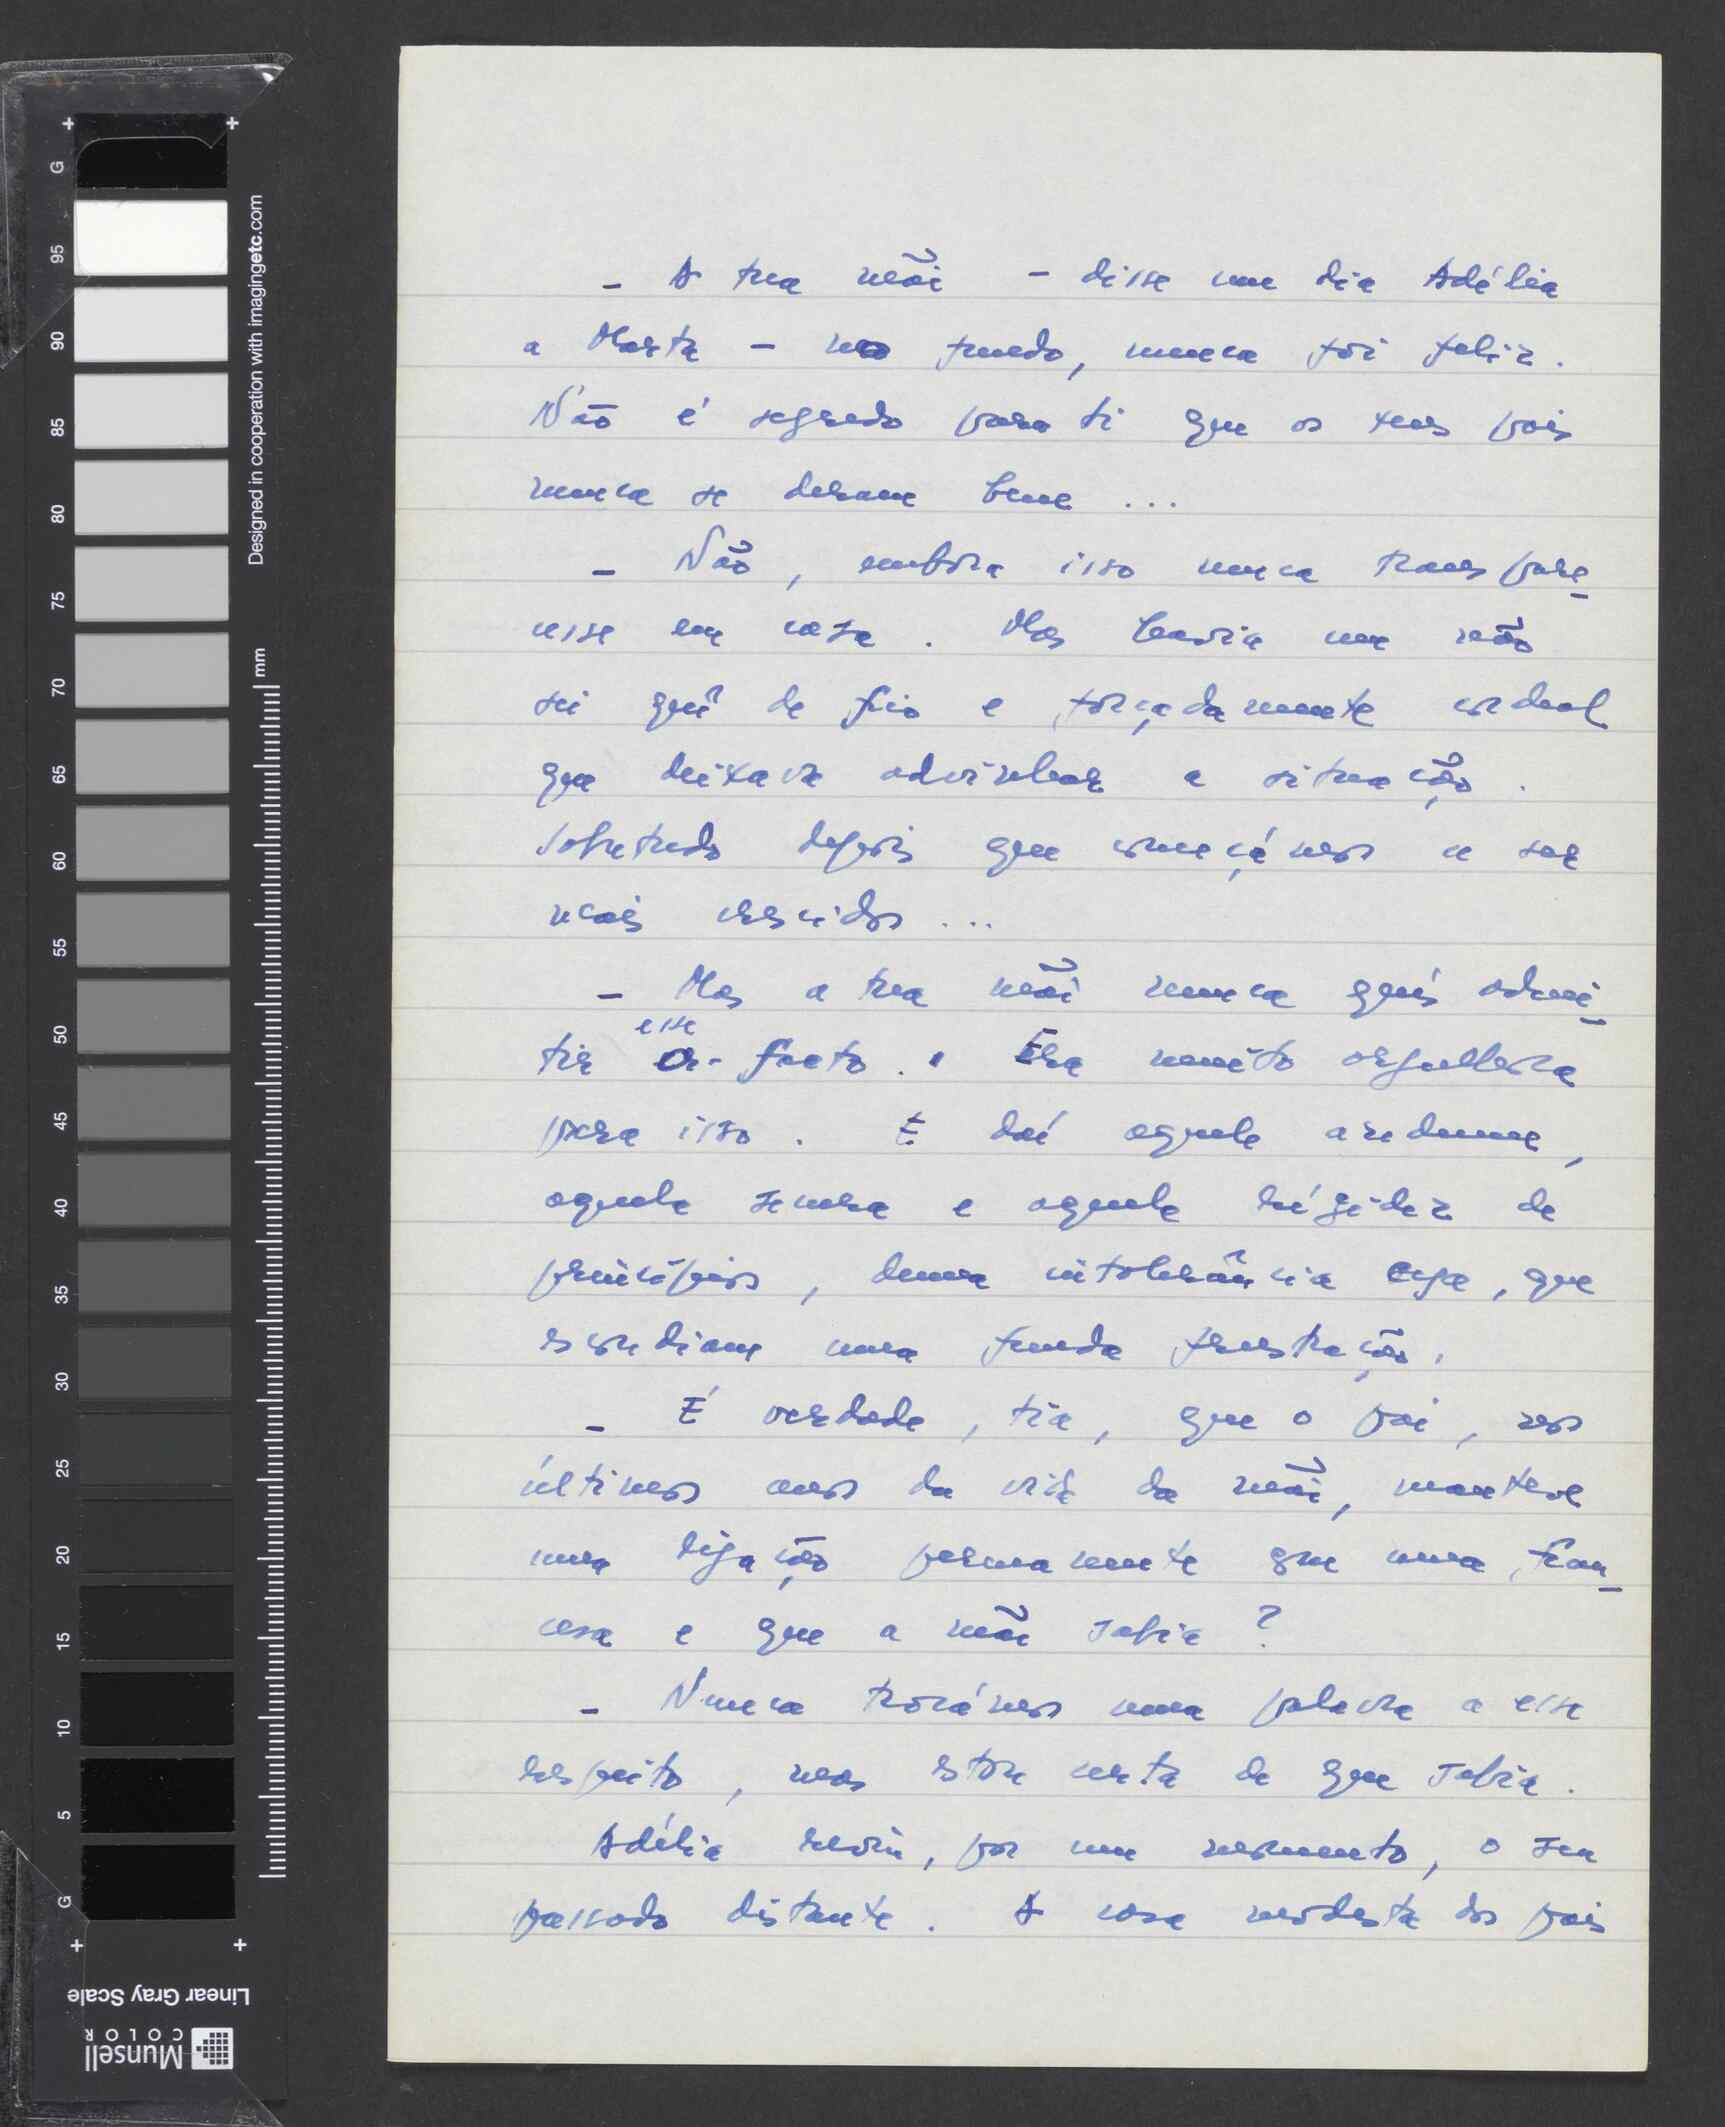 - A tua mãi - disse um dia Adélia
a Marta - no fundo, nunca foi feliz.
Não é segredo para ti que os teus pais
nunca se deram bem ...
- Não, embora isso nunca transpare-
cesse em casa. Mas havia um não
sei quê de frio e forçadamente cordeal
que deixava advinhar a situação.
Sobretudo depois que começámos a ser
mais crescidos ...
- Mas a tua mãi nunca quis admi-
esse
tir facto. Era muito orgulhosa
para isso. E daí aquele azedume,
aquela e aquela rígidez de
princípios, duma intolerância cega, que
escondiam uma funda frustração.
- É verdade, tia, que o pai, nos
últimos anos da vida da mãi, manteve
uma ligação permanente com uma fran-
cesa e que a mãi sabia?
- Nunca trocámos uma palavra a esse
respeito, mas estou certa de que sabia.
Adélia reviu, por um momento, o seu
passado distante. A casa modesta dos pais
Designed in cooperation with imagingetc.com
mm
G
95
90
85
80
75
70
65
60
55
50
45
40
35
30
25
20
15
10
5
G
Linear Gray Scale
Munsell
COLOR